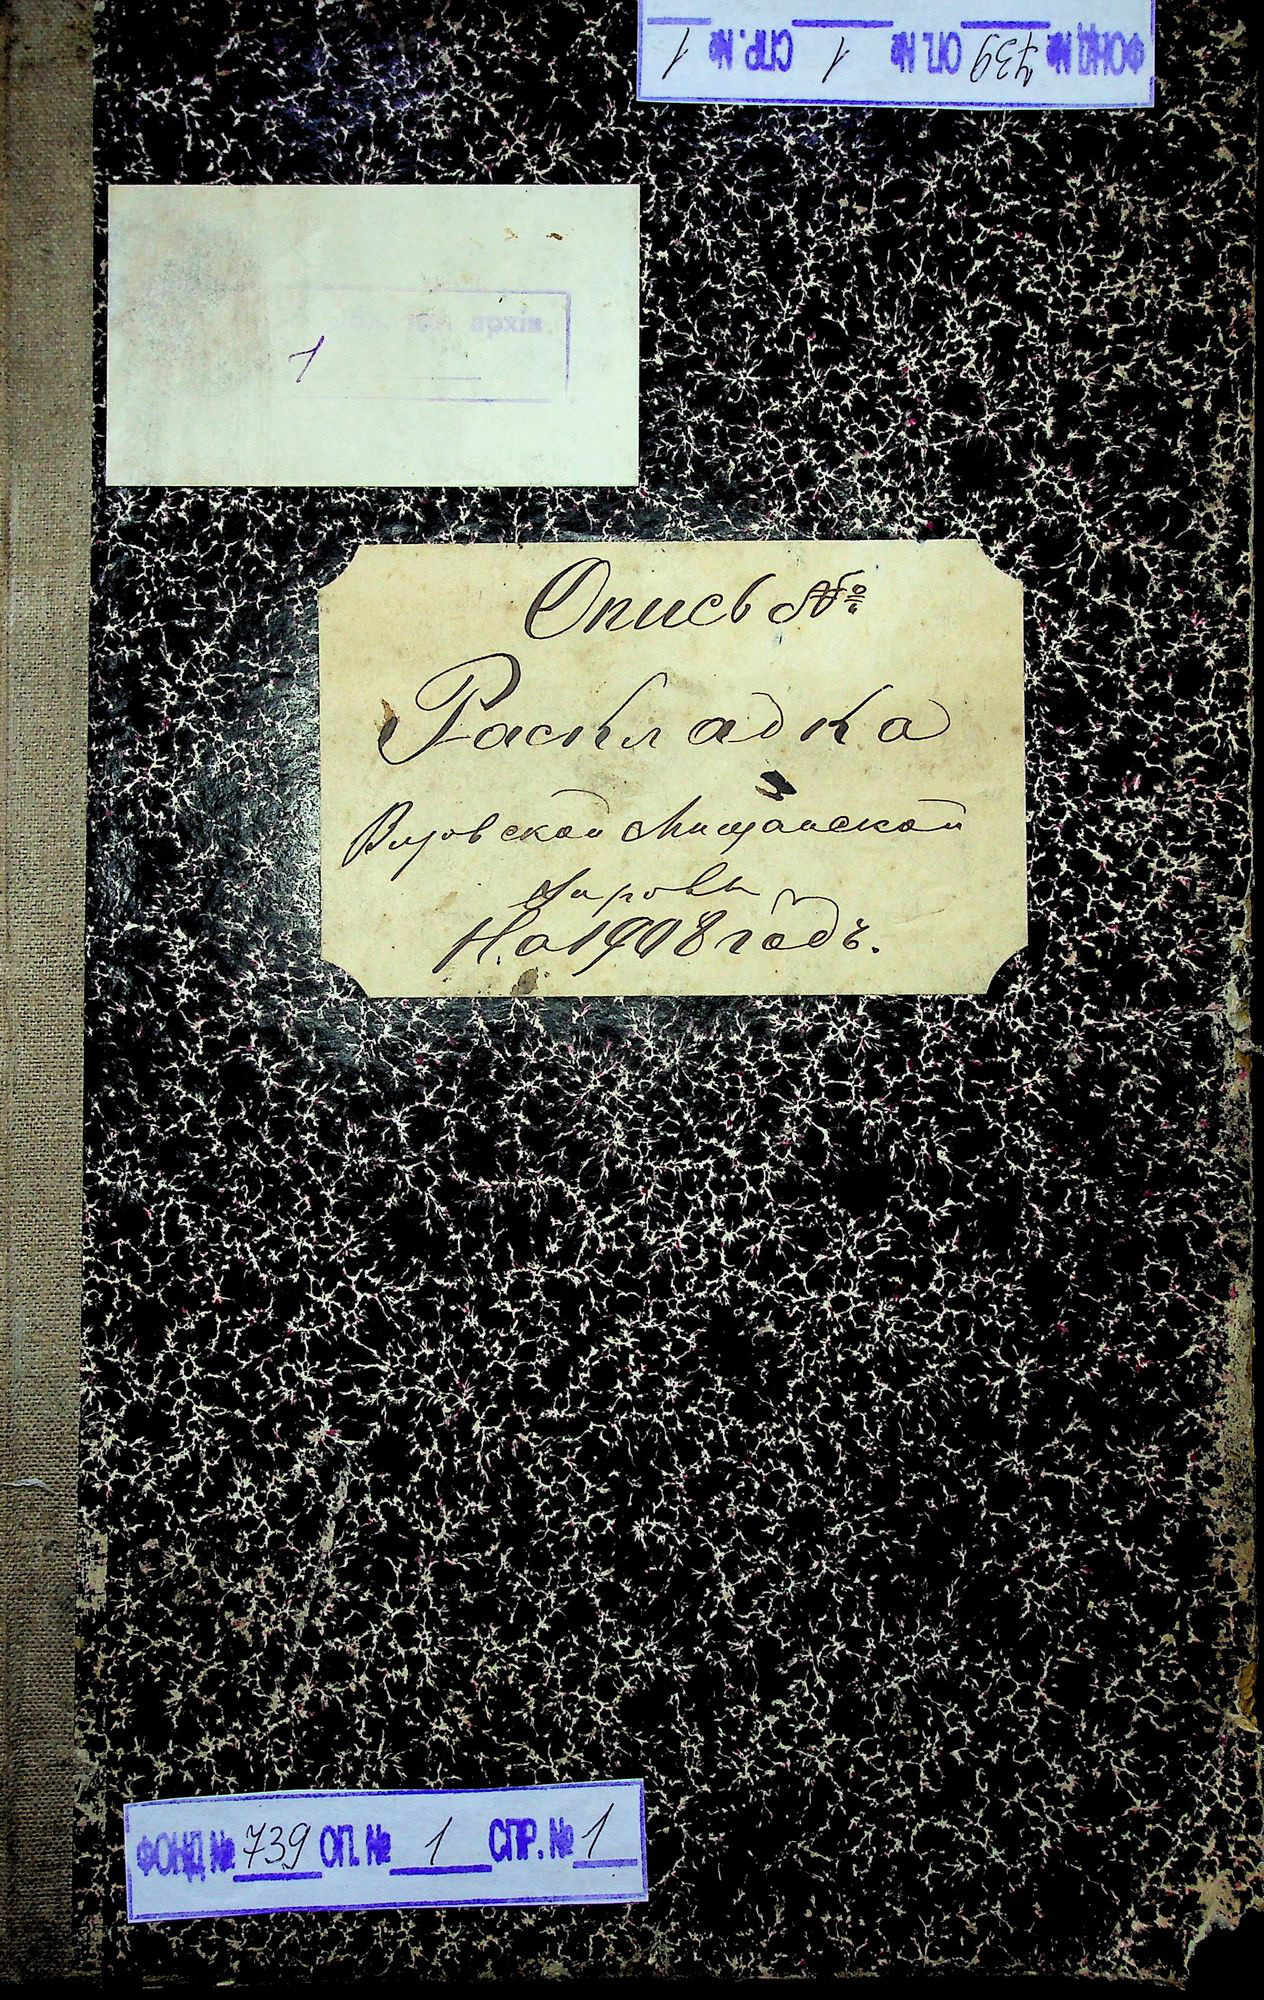 ФОНД № 739 ОП. № 1 СПР. № 1
архів
1
Опись №
Раскладка
Мищанской
На 1908 годъ.
ФОНД № 739 ОП. № 1 СПР. № 1